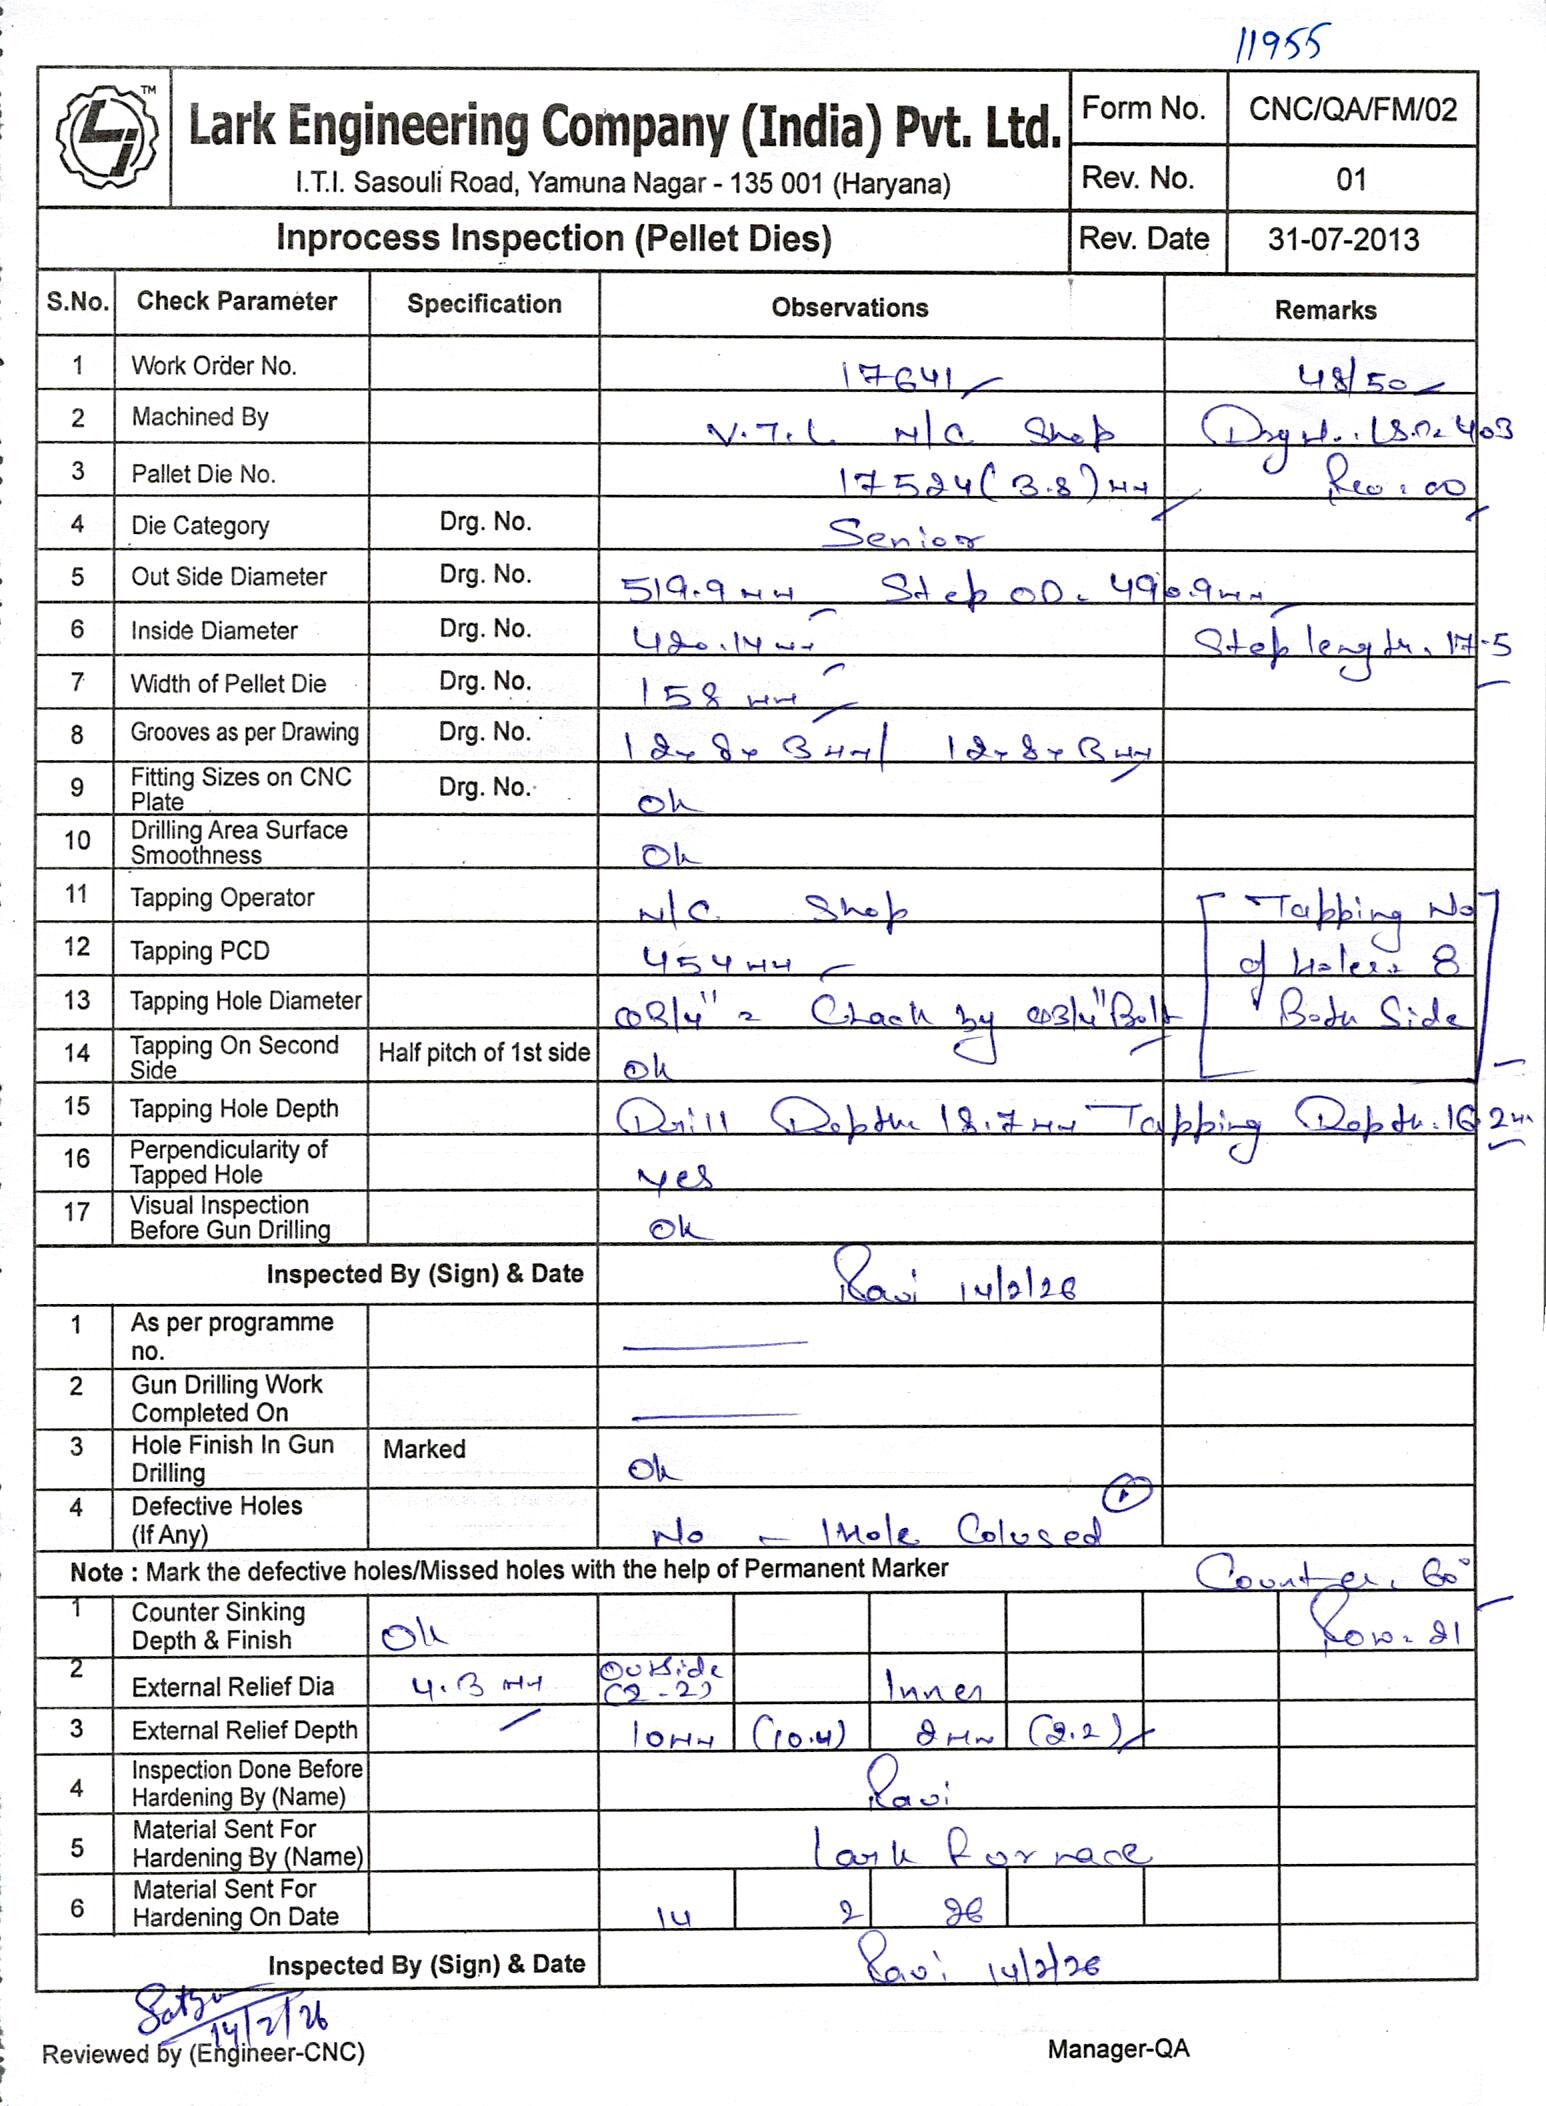 11955
TM
Lark Engineering Company (India) Pvt. Ltd.
I.T.I. Sasouli Road, Yamuna Nagar - 135 001 (Haryana)
Form No. CNC/QA/FM/02
Rev. No. 01
Inprocess Inspection (Pellet Dies) Rev. Date 31-07-2013
S.No. Check Parameter Specification Observations Remarks
1 Work Order No. 17641 48/50
2 Machined By V.T.L N/C Shop Drg 403
3 Pallet Die No. 17524 (3.8) mm Rev: 00
4 Die Category Drg. No. Senior
5 Out Side Diameter Drg. No. 519.9 mm Step OD. 490.9 mm
6 Inside Diameter Drg. No. 420.14 mm Step length. 17.5
7 Width of Pellet Die Drg. No. 158 mm
8 Grooves as per Drawing Drg. No. 12x8x3 mm / 12x8x3 mm
9 Fitting Sizes on CNC Plate Drg. No. Ok
10 Drilling Area Surface Smoothness Ok
11 Tapping Operator N/C Shop Tapping No
12 Tapping PCD 454 mm of holes 8
13 Tapping Hole Diameter 3/4" = Chack by 3/4" Bolt Both Side
14 Tapping On Second Side Half pitch of 1st side Ok
15 Tapping Hole Depth Drill Depth 18.7 mm Tapping Depth. 16.2 mm
16 Perpendicularity of Tapped Hole Yes
17 Visual Inspection Before Gun Drilling Ok
Inspected By (Sign) & Date Ravi 14/2/26
1 As per programme no.
2 Gun Drilling Work Completed On
3 Hole Finish In Gun Drilling Marked Ok
4 Defective Holes (If Any) No - 1 Hole Colused
Note : Mark the defective holes/Missed holes with the help of Permanent Marker Counter. 60°
1 Counter Sinking Depth & Finish Ok Row = 21
2 External Relief Dia 4.3 mm Outside (2-2) Inner
3 External Relief Depth 10 mm (10.4) 2 mm (2.2)
4 Inspection Done Before Hardening By (Name) Ravi
5 Material Sent For Hardening By (Name) Lark Furnace
6 Material Sent For Hardening On Date 14 2 26
Inspected By (Sign) & Date Ravi 14/2/26
14/2/26
Reviewed by (Engineer-CNC) Manager-QA